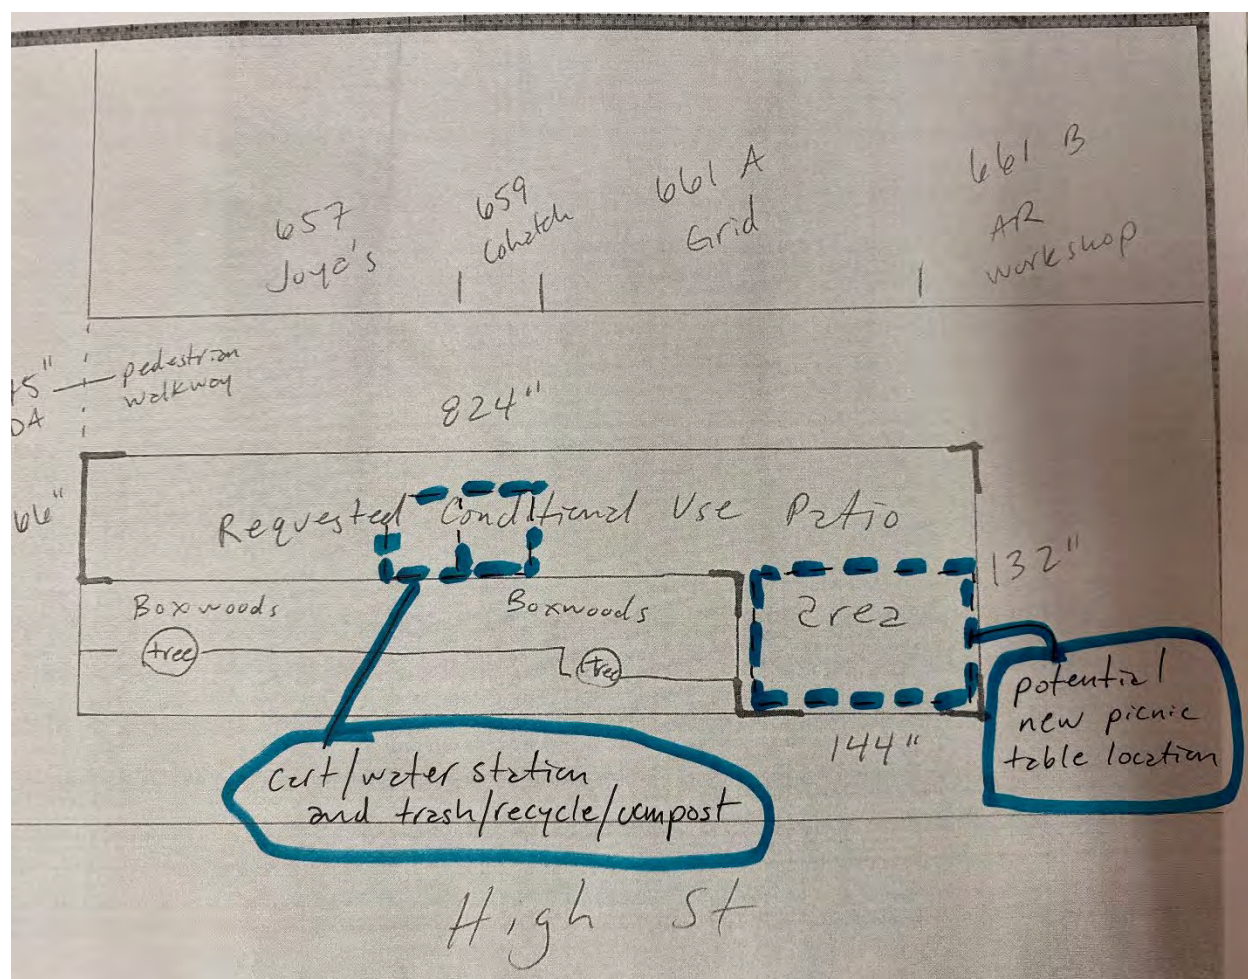 657
Joya's
659
Cohatch
661 A
Grid
661 B
AR
workshop
pedestrian
walkway
824"
66"
Requested Conditional Use Patio
area
132"
Boxwoods
Boxwoods
tree
tree
144"
potential
new picnic
table location
cart/water station
and trash/recycle/compost
High St